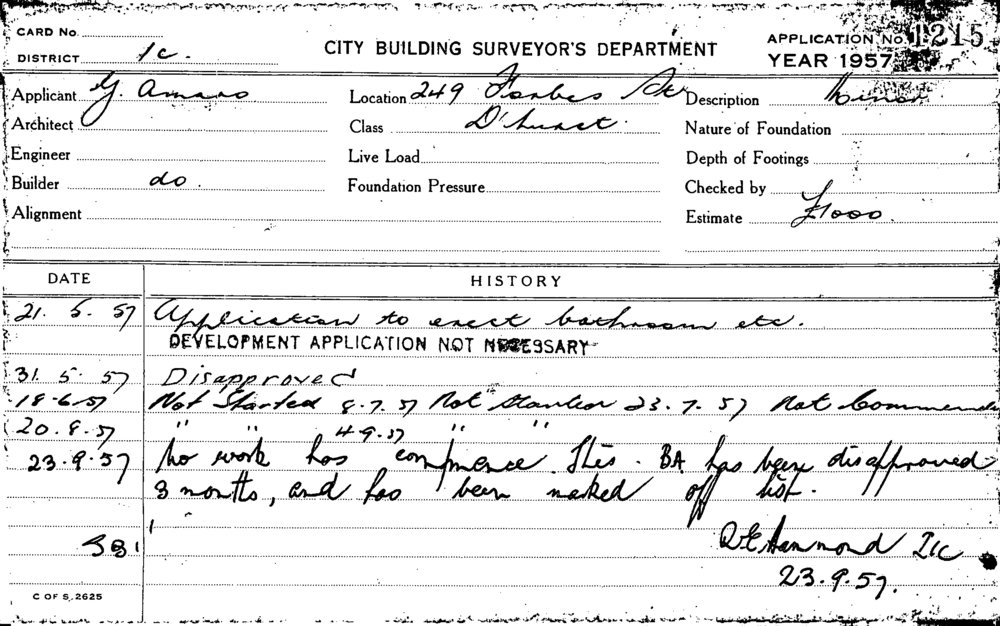 CARD No.
DISTRICT 1c.
CITY BUILDING SURVEYOR'S DEPARTMENT
APPLICATION No. 1215
YEAR 1957
Applicant G. Amaro Location 249 Forbes St Description Minor
Architect Class D'hurst. Nature of Foundation
Engineer Live Load Depth of Footings
Builder do. Foundation Pressure Checked by
Alignment Estimate £1000.
DATE HISTORY
21. 5. 57 Application to erect bathroom etc.
DEVELOPMENT APPLICATION NOT NECESSARY
31. 5. 57 Disapproved
18.6.57 Not Started 8.7.57 Not Started 23.7.57 Not Commenced
20.8.57 " " 4.9.57 " "
23.9.57 No work has commence. This. BA has been disapproved
3 months, and has been marked off list.
Hammond 1c
23.9.57.
C OF S. 2625